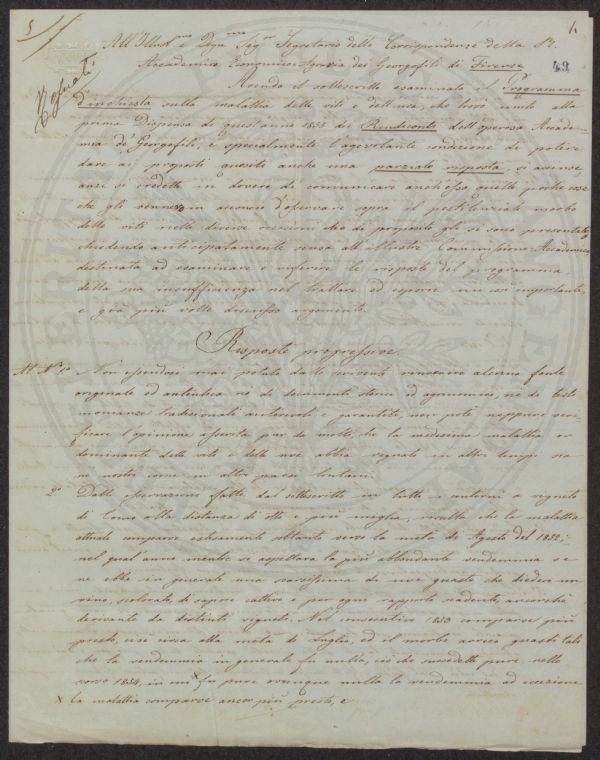 5
1.
49
All'Illmo e Degmo Sigr Segretario delle Corrispondenze della R.
Accademia Economico-Agraria dei Georgofili di Firenze
Avendo il sottoscritto esaminato il Programma
d'inchiesta sulla malattia delle viti e dell'uva, che trovò unito alla
prima Dispensa di quest'anno 1855 dei Rendiconti dell'operosa Accade-
mia de' Georgofili, e specialmente l'agevolante condizione di potere
dare ai proposti quesiti anche una parziale risposta, si avvisò,
anzi si credette in dovere di comunicare anch'esso quelle poche cose
che gli vennero in acconcio d'osservare sopra il pestilenziale morbo
delle viti nelle diverse occasioni che di proposito gli si sono presentate,
chiedendo anticipatamente scusa all'illustre Commissione Accademica
destinata ad esaminare e riferire le risposte del programma,
della sua insufficienza nel trattare ed esporre un così importante,
e già più volte discusso argomento.
Risposte progressive.
Al No 1o Non essendosi mai potuto dallo scrivente rinvenire alcuna fonte
originale ed autentica nè di documenti storici ed agronomici, nè di testi-
monianze tradizionali autorevoli e garantite, non potè neppure veri-
ficare l'opinione asserita pur da molti, che la medesima malattia or
dominante delle viti e delle uve abbia regnato in altri tempi sia
ne' nostri come in altri paesi lontani.
2o Dalle osservazioni fatte dal sottoscritto in tutti i contorni a vigneti
di Como alla distanza di otto e più miglia, risulta che la malattia
attuale comparve estesamente soltanto verso la metà di Agosto del 1852;
nel qual'anno mentre si aspettava la più abbondante vendemmia se
ne ebbe in generale una scarsissima di uve guaste che diedero un
vino, scolorato, di sapore cattivo e per ogni rapporto scadente, ancorchè
derivante da distinti vigneti. Nel consecutivo 1853 comparve più
presto, cioè circa alla metà di Luglio, ed il morbo arrecò guasti tali
che la vendemmia in generale fu nulla, ciò che succedette pure nello
scorso 1854, in cui x fu pure ovunque nulla la vendemmia ad eccezione
x la malattia comparve ancor più presto, e